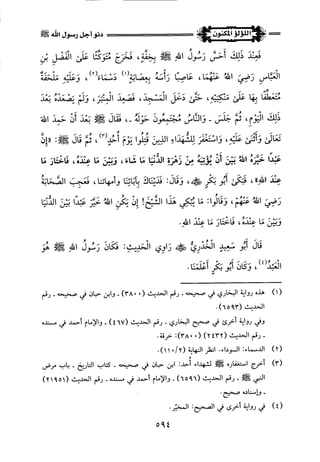 اللؤلؤ المكنون
دنو أجل رسول الله ﷺ
فَعِنْدَ ذَلِكَ أَحَسَّ رَسُولُ اللهِ ﷺ بِخِفَّةٍ، فَخَرَجَ مُتَوَكِّئًا عَلَى الْفَضْلِ بْنِ
الْعَبَّاسِ رَضِيَ اللهُ عَنْهُمَا، عَاصِبًا رَأْسَهُ بِعِصَابَةٍ(١) دَسْمَاءَ(٢)، وَعَلَيْهِ مِلْحَفَةٌ
مُتَعَطِّفًا بِهَا عَلَى مَنْكِبَيْهِ، حَتَّى دَخَلَ الْمَسْجِدَ، فَصَعِدَ الْمِنْبَرَ، وَلَمْ يَصْعَدْهُ بَعْدَ
ذَلِكَ الْيَوْمِ، ثُمَّ جَلَسَ - وَالنَّاسُ مُجْتَمِعُونَ حَوْلَهُ -، فَقَالَ ﷺ بَعْدَ أَنْ حَمِدَ اللهَ
تَعَالَى وَأَثْنَى عَلَيْهِ، وَاسْتَغْفَرَ لِلشُّهَدَاءِ الَّذِينَ قُتِلُوا يَوْمَ أُحُدٍ(٣)، ثُمَّ قَالَ ﷺ: «إِنَّ
عَبْدًا خَيَّرَهُ اللهُ بَيْنَ أَنْ يُؤْتِيَهُ مِنْ زَهْرَةِ الدُّنْيَا مَا شَاءَ، وَبَيْنَ مَا عِنْدَهُ، فَاخْتَارَ مَا
عِنْدَ اللهِ»، فَبَكَى أَبُو بَكْرٍ ﷺ، وَقَالَ: فَدَيْنَاكَ بِآبَائِنَا وَأُمَّهَاتِنَا، فَعَجِبَ الصَّحَابَةُ
رَضِيَ اللهُ عَنْهُمْ، وَقَالُوا: مَا يُبْكِي هَذَا الشَّيْخَ! إِنْ يَكُنِ اللهُ خَيَّرَ عَبْدًا بَيْنَ الدُّنْيَا
وَبَيْنَ مَا عِنْدَهُ، فَاخْتَارَ مَا عِنْدَ اللهِ.
قَالَ أَبُو سَعِيدٍ الْخُدْرِيُّ ﷺ رَاوِي الْحَدِيثِ: فَكَانَ رَسُولُ اللهِ ﷺ هُوَ
الْعَبْدُ(٤)، وَكَانَ أَبُو بَكْرٍ أَعْلَمَنَا.
(١) هذه رواية البخاري في صحيحه - رقم الحديث (٣٨٠٠) - وابن حبان في صحيحه - رقم
الحديث (٦٥٩٣).
وفي رواية أخرى في صحيح البخاري - رقم الحديث (٤٦٧) - والإمام أحمد في مسنده
- رقم الحديث (٢٤٣٢) (٣٨٠٠): خرقة.
(٢) الدسماء: السوداء. انظر النهاية (١١٠/٢).
(٣) أخرج استغفاره ﷺ لشهداء أحد: ابن حبان في صحيحه - كتاب التاريخ - باب مرض
النبي ﷺ - رقم الحديث (٦٥٩٦) - والإمام أحمد في مسنده - رقم الحديث (٢١٩٥١)
- وإسناده صحيح.
(٤) في رواية أخرى في الصحيح: المخيَّر.
٥٩٤